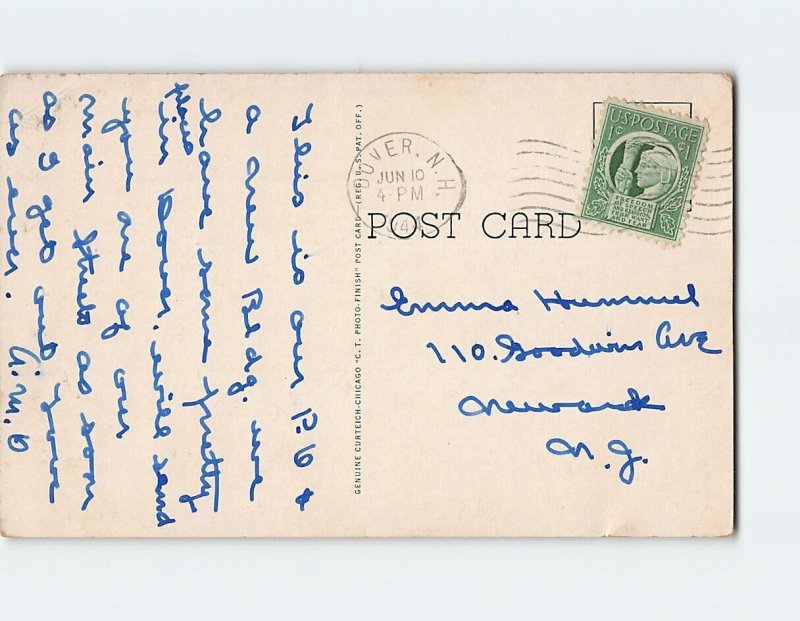 This is our P.O &
a new Bldg. we
have some pretty
things
in Dover. will send
you one of our
main Street as soon
as I get one yours
as ever. A.M.D
GENUINE CURTEICH-CHICAGO "C.T. PHOTO-FINISH" POST CARD—(REG. U. S. PAT. OFF.)
DOVER, N.H.
JUN 10
4-PM
1944
POST CARD
U.S. POSTAGE
1¢ 1¢
FREEDOM
OF SPEECH
AND RELIGION
FROM WANT
AND FEAR
Emma Hummel
110. Goodwin Ave
Newark
N.J.